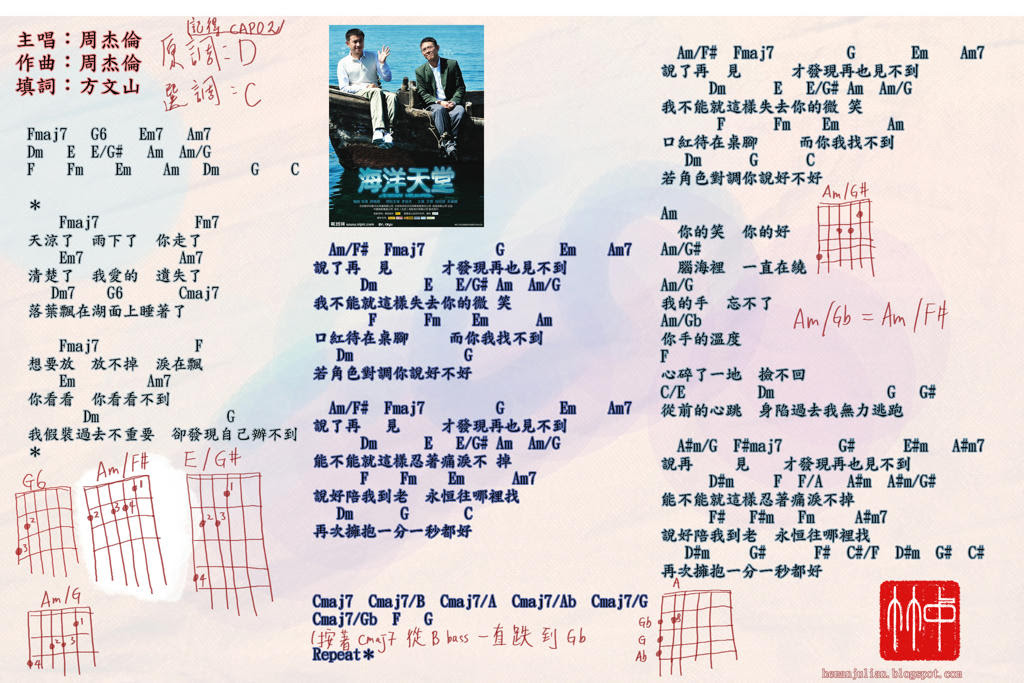 主唱：周杰倫
作曲：周杰倫
填詞：方文山
記得 CAPO 2
原調：D
選調：C
Fmaj7 G6 Em7 Am7
Dm E E/G# Am Am/G
F Fm Em Am Dm G C
*
Fmaj7 Fm7
天涼了 雨下了 你走了
Em7 Am7
清楚了 我愛的 遺失了
Dm7 G6 Cmaj7
落葉飄在湖面上睡著了
Fmaj7 F
想要放 放不掉 淚在飄
Em Am7
你看看 你看看不到
Dm G
我假裝過去不重要 卻發現自己辦不到
*
G6
2
3
Am/F#
1
2
3
4
E/G#
1
2
3
4
Am/G
1
2
3
4
海洋天堂
Am/F# Fmaj7 G Em Am7
說了再 見 才發現再也見不到
Dm E E/G# Am Am/G
我不能就這樣失去你的微 笑
F Fm Em Am
口紅待在桌腳 而你我找不到
Dm G
若角色對調你說好不好
Am/F# Fmaj7 G Em Am7
說了再 見 才發現再也見不到
Dm E E/G# Am Am/G
能不能就這樣忍著痛淚不 掉
F Fm Em Am7
說好陪我到老 永恒往哪裡找
Dm G C
再次擁抱一分一秒都好
Cmaj7 Cmaj7/B Cmaj7/A Cmaj7/Ab Cmaj7/G
Cmaj7/Gb F G
(按著 Cmaj7 從 B bass 一直跌到 Gb
Repeat*
Am/F# Fmaj7 G Em Am7
說了再 見 才發現再也見不到
Dm E E/G# Am Am/G
我不能就這樣失去你的微 笑
F Fm Em Am
口紅待在桌腳 而你我找不到
Dm G C
若角色對調你說好不好
Am
你的笑 你的好
Am/G#
腦海裡 一直在繞
Am/G
我的手 忘不了
Am/Gb
你手的溫度
F
心碎了一地 撿不回
C/E Dm G G#
從前的心跳 身陷過去我無力逃跑
Am/G#
Am/Gb = Am/F#
A#m/G F#maj7 G# E#m A#m7
說再 見 才發現再也見不到
D#m F F/A A#m A#m/G#
能不能就這樣忍著痛淚不掉
F# F#m Fm A#m7
說好陪我到老 永恒往哪裡找
D#m G# F# C#/F D#m G# C#
再次擁抱一分一秒都好
A
Gb
G
Ab
3
hemanjulian.blogspot.com